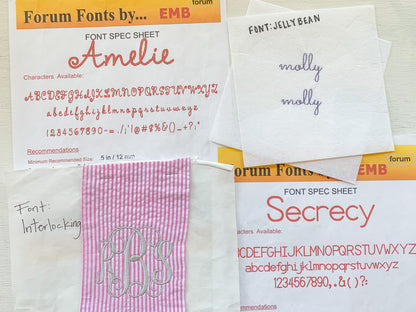 forum
Forum Fonts by... EMB
FONT SPEC SHEET
Amelie
Characters Available:
ABCDEFGHIJKLMNOPQRSTUVWXYZ
abcdefghijklmnopqrstuvwxyz
1234567890-=./;'!@#$%&()_+?:
Recommendations
Minimum Recommended Size: .5 in / 12 mm
FONT: JELLYBEAN
molly
molly
Font:
Interlocking
forum
Forum Fonts by... EMB
FONT SPEC SHEET
Secrecy
Characters Available:
BCDEFGHIJKLMNOPQRSTUVWXYZ
abcdefghijklmnopqrstuvwxyz
1234567890,.&()?:
Recommendations